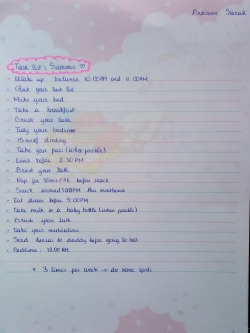 Princess Sarah
Task list : Summer
- Wake up between 10:00AM and 11:00AM
- Check your task list
- Make your bed
- Take a breakfast
- Brush your teeth
- Tidy your bedroom
- Take your paci (when possible)
- Lunch before 2:30PM
- Brush your teeth
- Nap for 30min/1h before snack
- Snack around
- Eat dinner before 9:00PM
- Take milk in a baby bottle (when possible)
- Brush your teeth
- Take your medications
- Send to daddy before going to bed
- Bedtime : 12:00AM
+ 3 times per week → do some sports